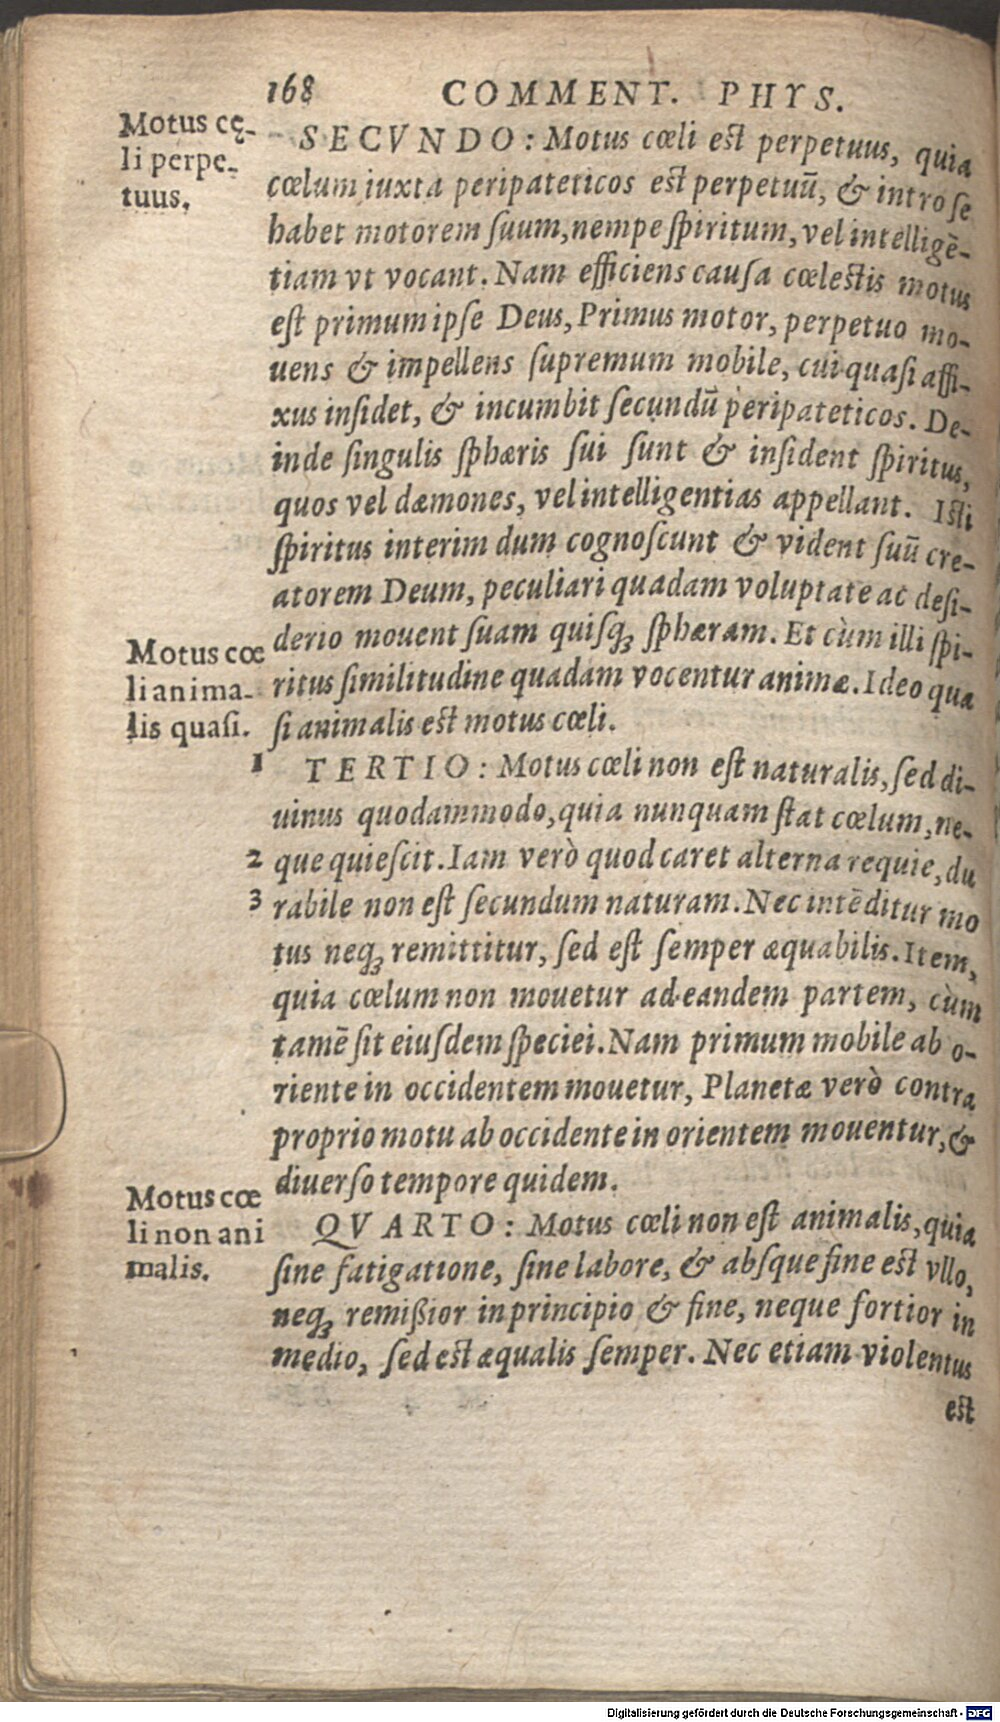 168 COMMENT. PHYS.
Motus cę-
li perpe-
tuus.
SECVNDO: Motus cœli est perpetuus, quia
cœlum iuxta peripateticos est perpetuū, & intro se
habet motorem suum, nempe spiritum, vel intelligē-
tiam vt vocant. Nam efficiens causa cœlestis motus
est primum ipse Deus, Primus motor, perpetuo mo-
uens & impellens supremum mobile, cui quasi affi-
xus insidet, & incumbit secundū peripateticos. De-
inde singulis sphæris sui sunt & insident spiritus,
quos vel dæmones, vel intelligentias appellant. Isti
spiritus interim dum cognoscunt & vident suū cre-
atorem Deum, peculiari quadam voluptate ac desi-
derio mouent suam quisqꝫ sphæram. Et cùm illi spi-
ritus similitudine quadam vocentur animæ. Ideo qua
si animalis est motus cœli.
Motus cœ
li anima-
lis quasi.
1 TERTIO: Motus cœli non est naturalis, sed di-
uinus quodammodo, quia nunquam stat cœlum, ne-
2 que quiescit. Iam verò quod caret alterna requie, du
3 rabile non est secundum naturam. Nec intēditur mo
tus neqꝫ remittitur, sed est semper æquabilis. Item,
quia cœlum non mouetur ad eandem partem, cùm
tamē sit eiusdem speciei. Nam primum mobile ab o-
riente in occidentem mouetur, Planetæ verò contra
proprio motu ab occidente in orientem mouentur, &
diuerso tempore quidem.
Motus cœ
li non ani
malis.
QVARTO: Motus cœli non est animalis, quia
sine fatigatione, sine labore, & absque fine est vllo,
neqꝫ remißior in principio & fine, neque fortior in
medio, sed est æqualis semper. Nec etiam violentus
est
Digitalisierung gefördert durch die Deutsche Forschungsgemeinschaft - DFG